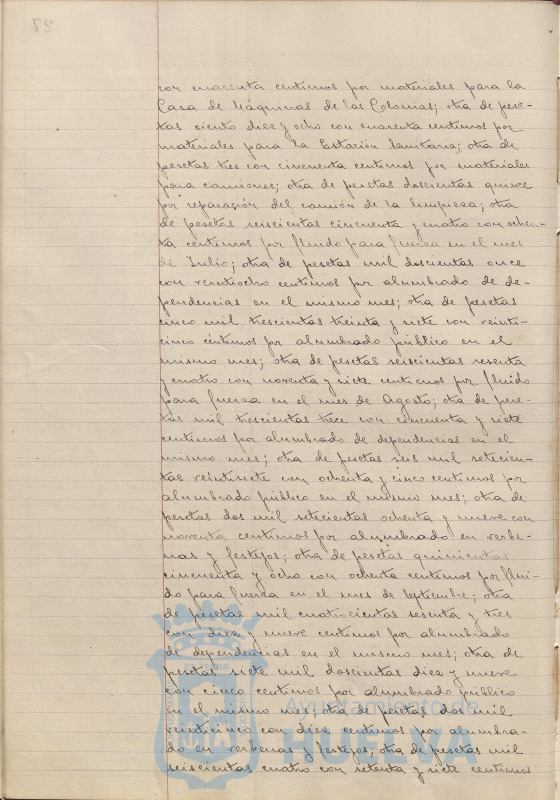 con cuarenta centimos por materiales para la
Casa de Máquinas de las Colonias; otra de pese-
tas ciento diez y ocho con cuarenta centimos por
materiales para la Estación Sanitaria; otra de
pesetas tres con cincuenta centimos por materiales
para camiones; otra de pesetas doscientas quince
por reparación del camión de la limpieza; otra
de pesetas seiscientas cincuenta y cuatro con ochen-
ta centimos por fluido para fuerza en el mes
de Julio; otra de pesetas mil doscientas once
con veintiocho centimos por alumbrado de de-
pendencias en el mismo mes; otra de pesetas
cinco mil trescientas treinta y siete con veinti-
cinco centimos por alumbrado público en el
mismo mes; otra de pesetas seiscientas sesenta
y cuatro con noventa y siete centimos por fluido
para fuerza en el mes de Agosto; otra de pese-
tas mil trescientas trece con cincuenta y siete
centimos por alumbrado de dependencias en el
mismo mes; otra de pesetas seis mil setecien-
tas veintisiete con ochenta y cinco centimos por
alumbrado público en el mismo mes; otra de
pesetas dos mil setecientas ochenta y nueve con
noventa centimos por alumbrado en verbe-
nas y festejos; otra de pesetas quinientas
cincuenta y ocho con ochenta centimos por flui-
do para fuerza en el mes de Septiembre; otra
de pesetas mil cuatrocientas sesenta y tres
con diez y nueve centimos por alumbrado
de dependencias en el mismo mes; otra de
pesetas siete mil doscientas diez y nueve
con cinco centimos por alumbrado público
en el mismo mes; otra de pesetas dos mil
veinticinco con diez centimos por alumbra-
do en verbenas y festejos; otra de pesetas mil
seiscientas cuatro con setenta y siete centimos
Ayuntamiento de
HUELVA